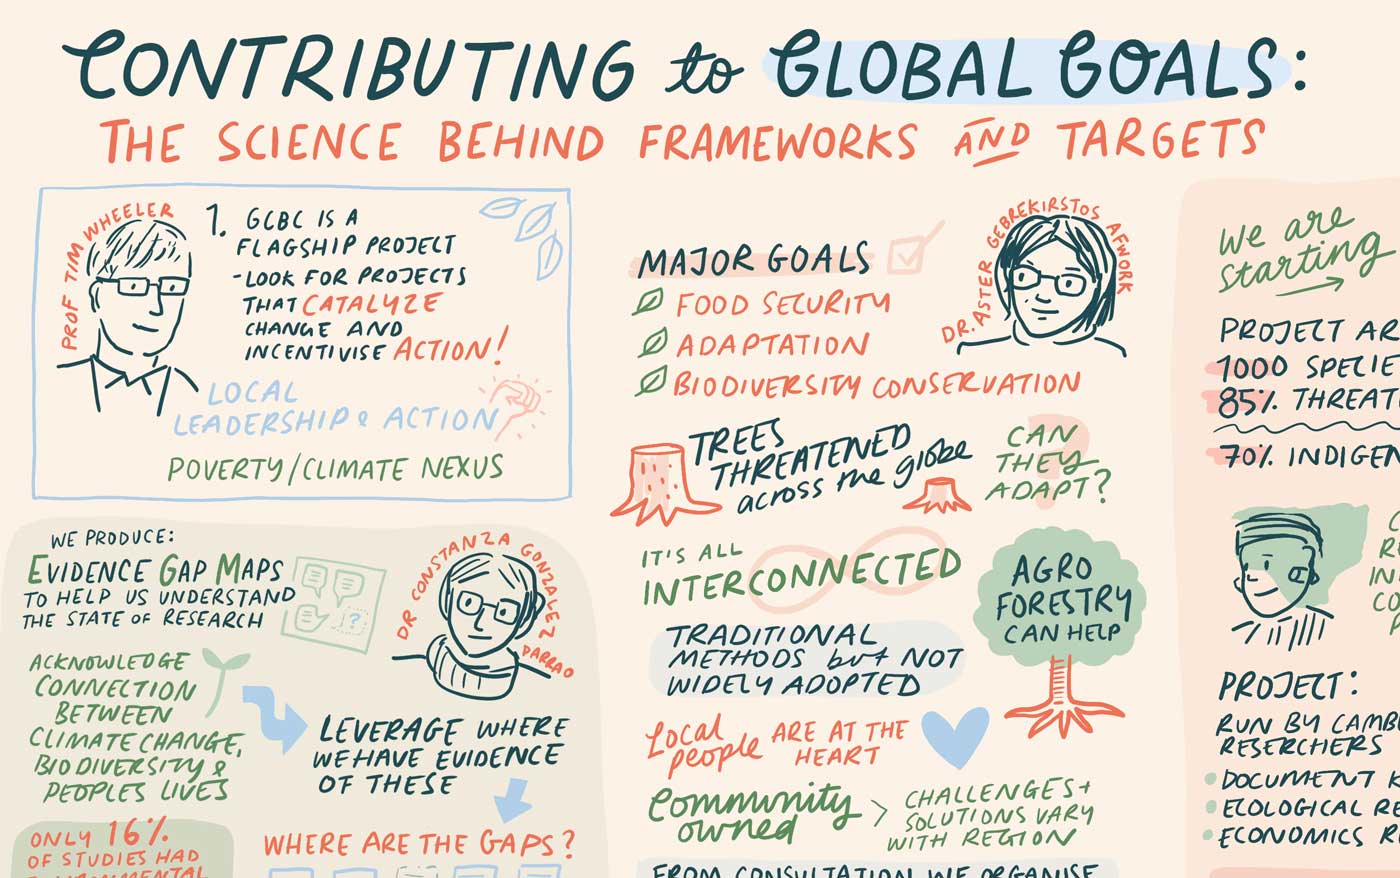 CONTRIBUTING to GLOBAL GOALS:
THE SCIENCE BEHIND FRAMEWORKS AND TARGETS
PROF TIM WHEELER
1. GCBC IS A
FLAGSHIP PROJECT
-LOOK FOR PROJECTS
THAT CATALYZE
CHANGE AND
INCENTIVISE ACTION!
LOCAL
LEADERSHIP & ACTION
POVERTY/CLIMATE NEXUS
WE PRODUCE:
EVIDENCE GAP MAPS
TO HELP US UNDERSTAND
THE STATE OF RESEARCH
DR CONSTANZA GONZALEZ
PARRAO
ACKNOWLEDGE
CONNECTION
BETWEEN
CLIMATE CHANGE,
BIODIVERSITY &
PEOPLES LIVES
LEVERAGE WHERE
WE HAVE EVIDENCE
OF THESE
ONLY 16%
OF STUDIES HAD
WHERE ARE THE GAPS?
MAJOR GOALS
FOOD SECURITY
ADAPTATION
BIODIVERSITY CONSERVATION
DR. ASTER GEBREKIRSTOS AFWORK
TREES
THREATENED
across the globe
CAN
THEY
ADAPT?
IT'S ALL
INTERCONNECTED
AGRO
FORESTRY
CAN HELP
TRADITIONAL
METHODS but NOT
WIDELY ADOPTED
Local
people ARE AT THE
HEART
Community
owned
>
CHALLENGES +
SOLUTIONS VARY
WITH REGION
FROM CONSULTATION WE ORGANISE
we are
starting
PROJECT
1000
85%
70%
PROJECT:
RUN BY
RESERCHERS
DOCUMENT
ECOLOGICAL
ECONOMICS